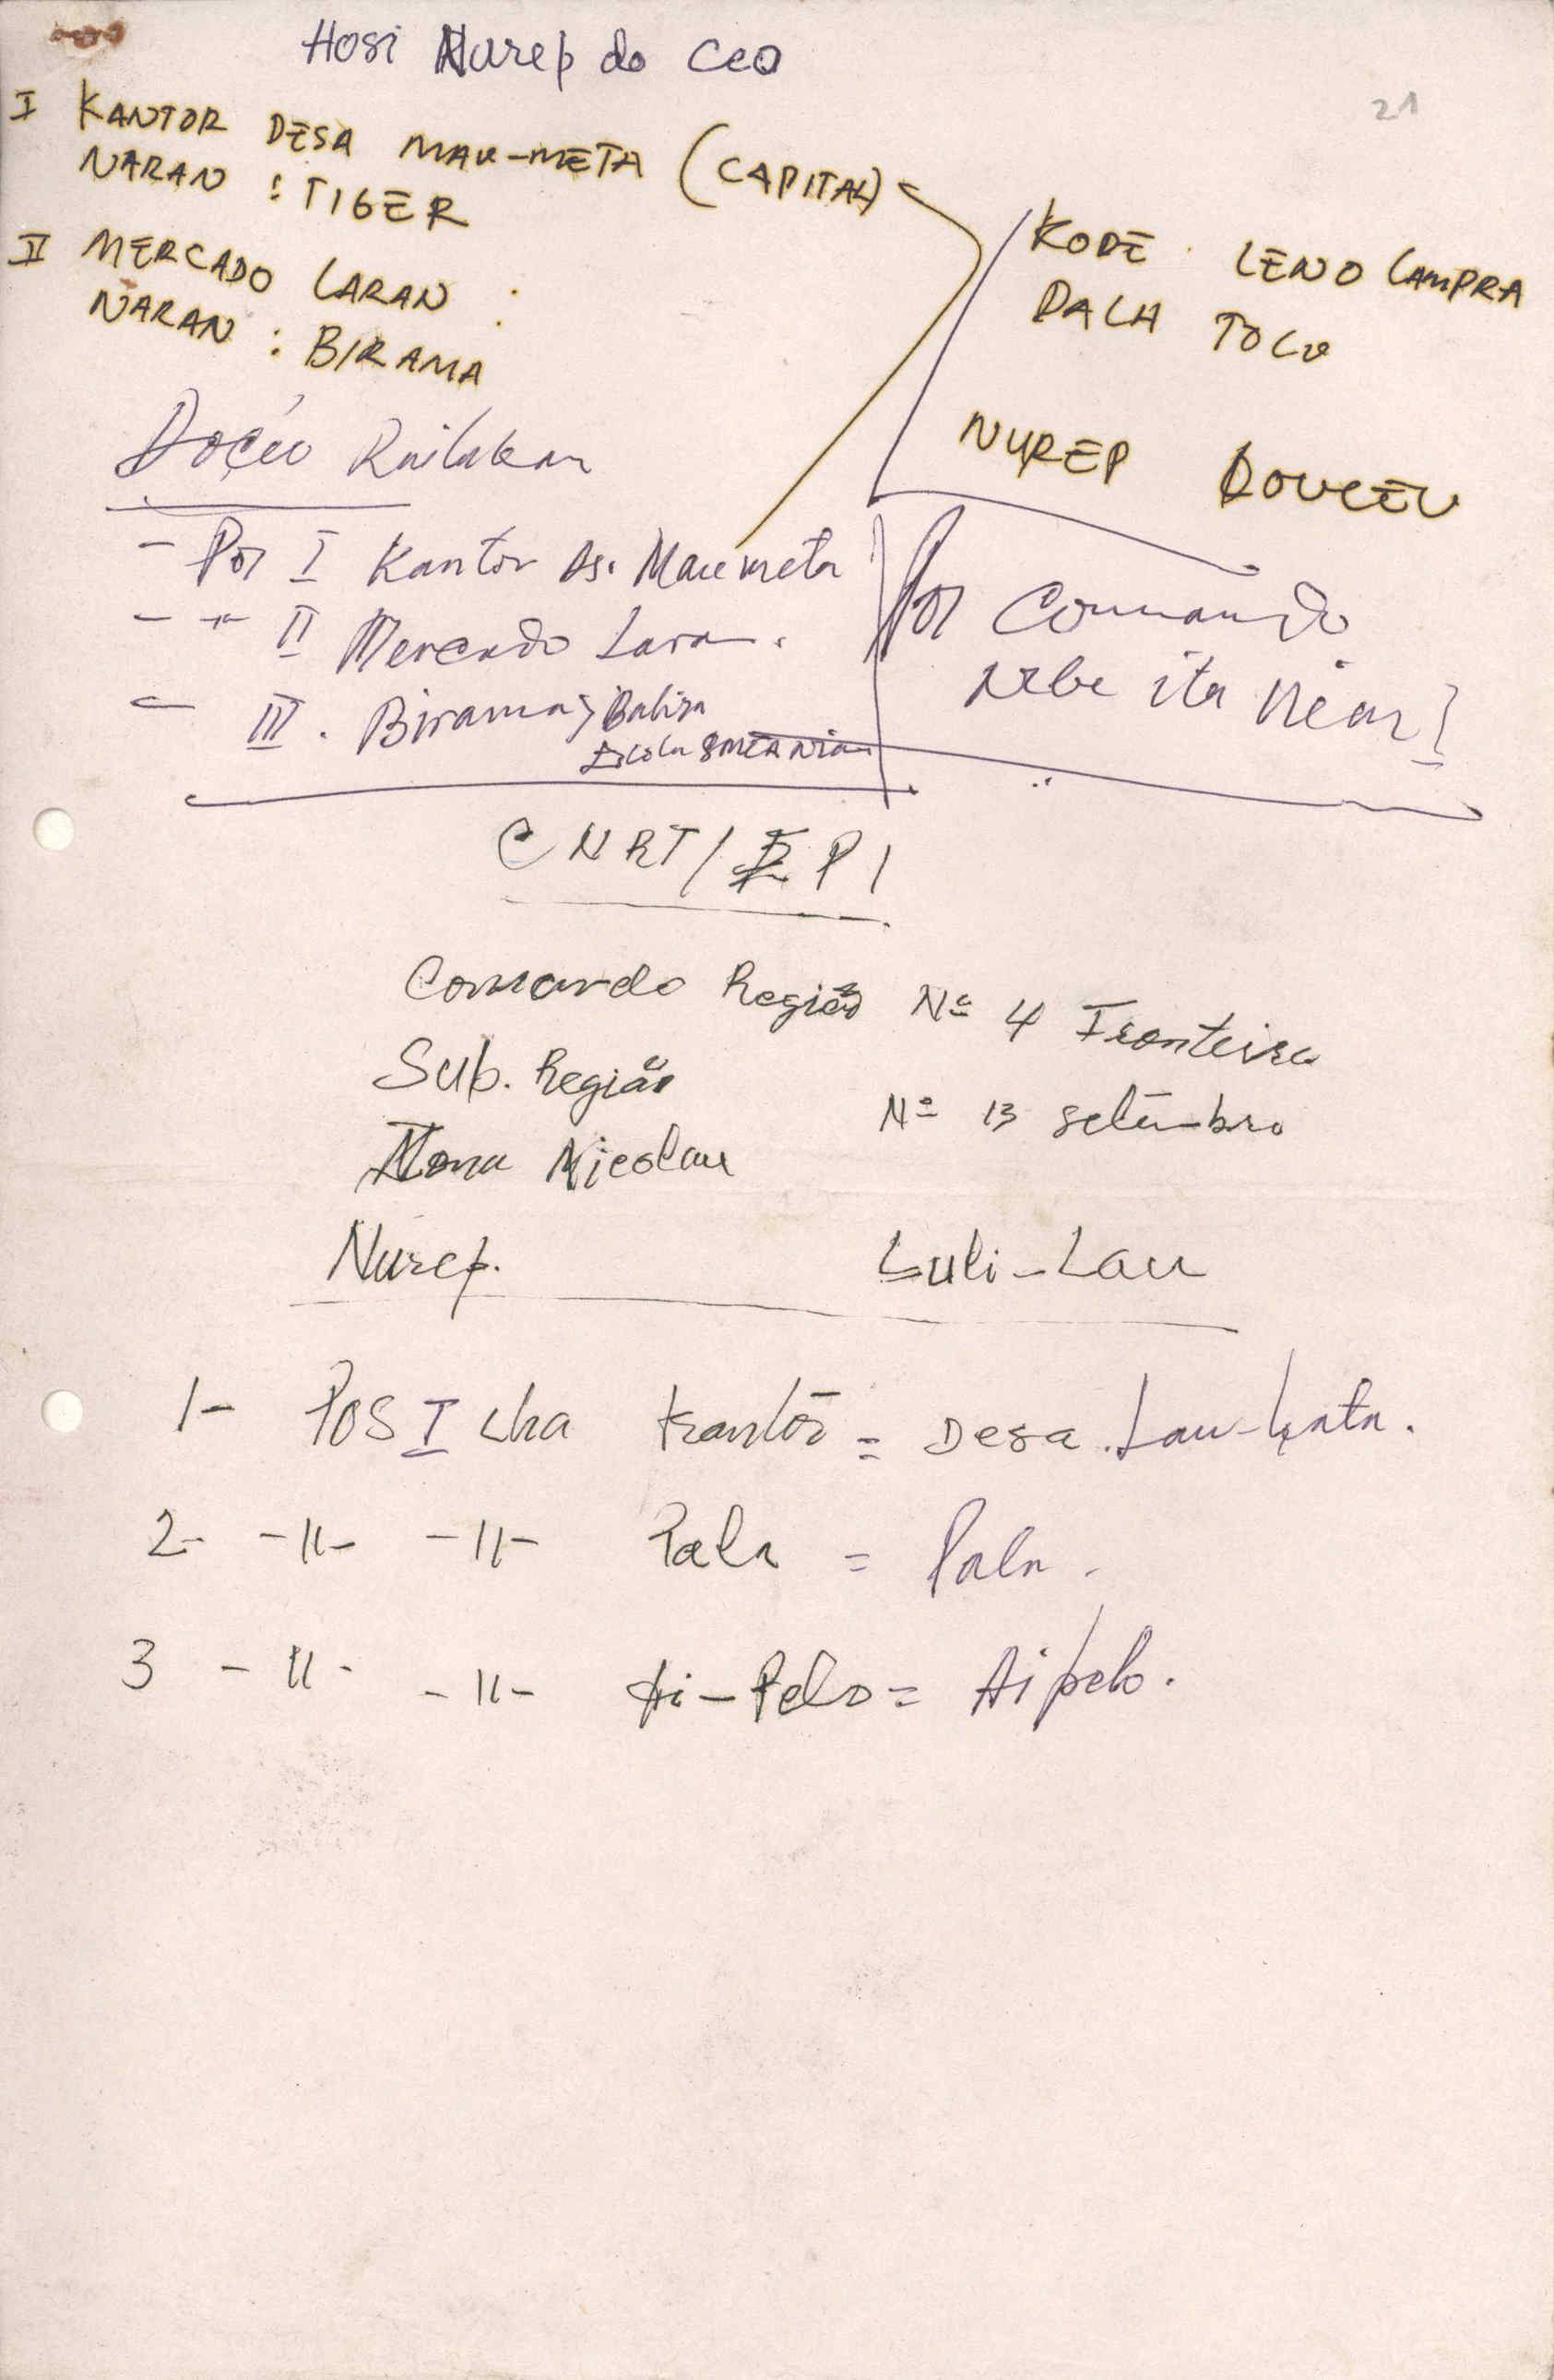 Hosi Nurep do Ceo
21
I KANTOR DESA MAU-META (CAPITAL)
NARAN : TIGER
II MERCADO LARAN :
NARAN : BIRAMA
KODE LENO CAMPRA
DALA TOLU
NUREP DOUCEU
Doceu Railakan
- Pos I Kantor Ds. Maumeta
- -"- II Mercado Laran.
- III. Birama, Baliza
Escola
Pos Comando
nebe ita hean?
CNRT/ P/
Comando Região Nº 4 Fronteira
Sub. Região Nº 13 setembro
Zona Nicolau
Nurep. Luli-Lau
1- POS I iha kantôr = Desa Lau-hata.
2- -"- -"- Pala = Pala.
3 -"- -"- Ai-Pelo = Aipelo.